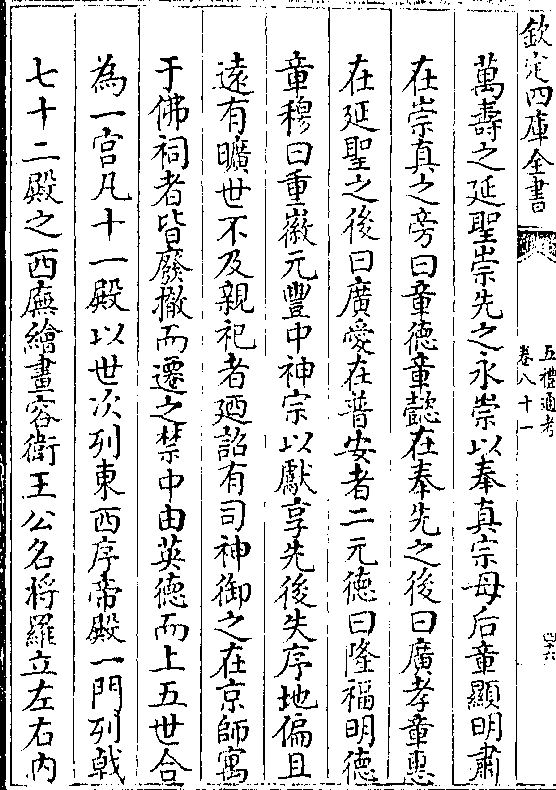 欽定四庫全書
五禮通考
卷八十一
萬壽之延聖崇先之永崇以奉真宗母后章顯明肅
在崇真之旁曰章德章懿在奉先之後曰廣孝章惠
在延聖之後曰廣愛在普安者二元德曰隆福明德
章穆曰重徽元豐中神宗以獻享先後失序地偏且
遠有曠世不及親祀者廼詔有司神御之在京師寓
于佛祠者皆廢撤而遷之禁中由英德而上五世合
為一宫凡十一殿以世次列東西序帝殿一門列㦸
七十二殿之西廡繪畫容衛王公名将羅立左右内